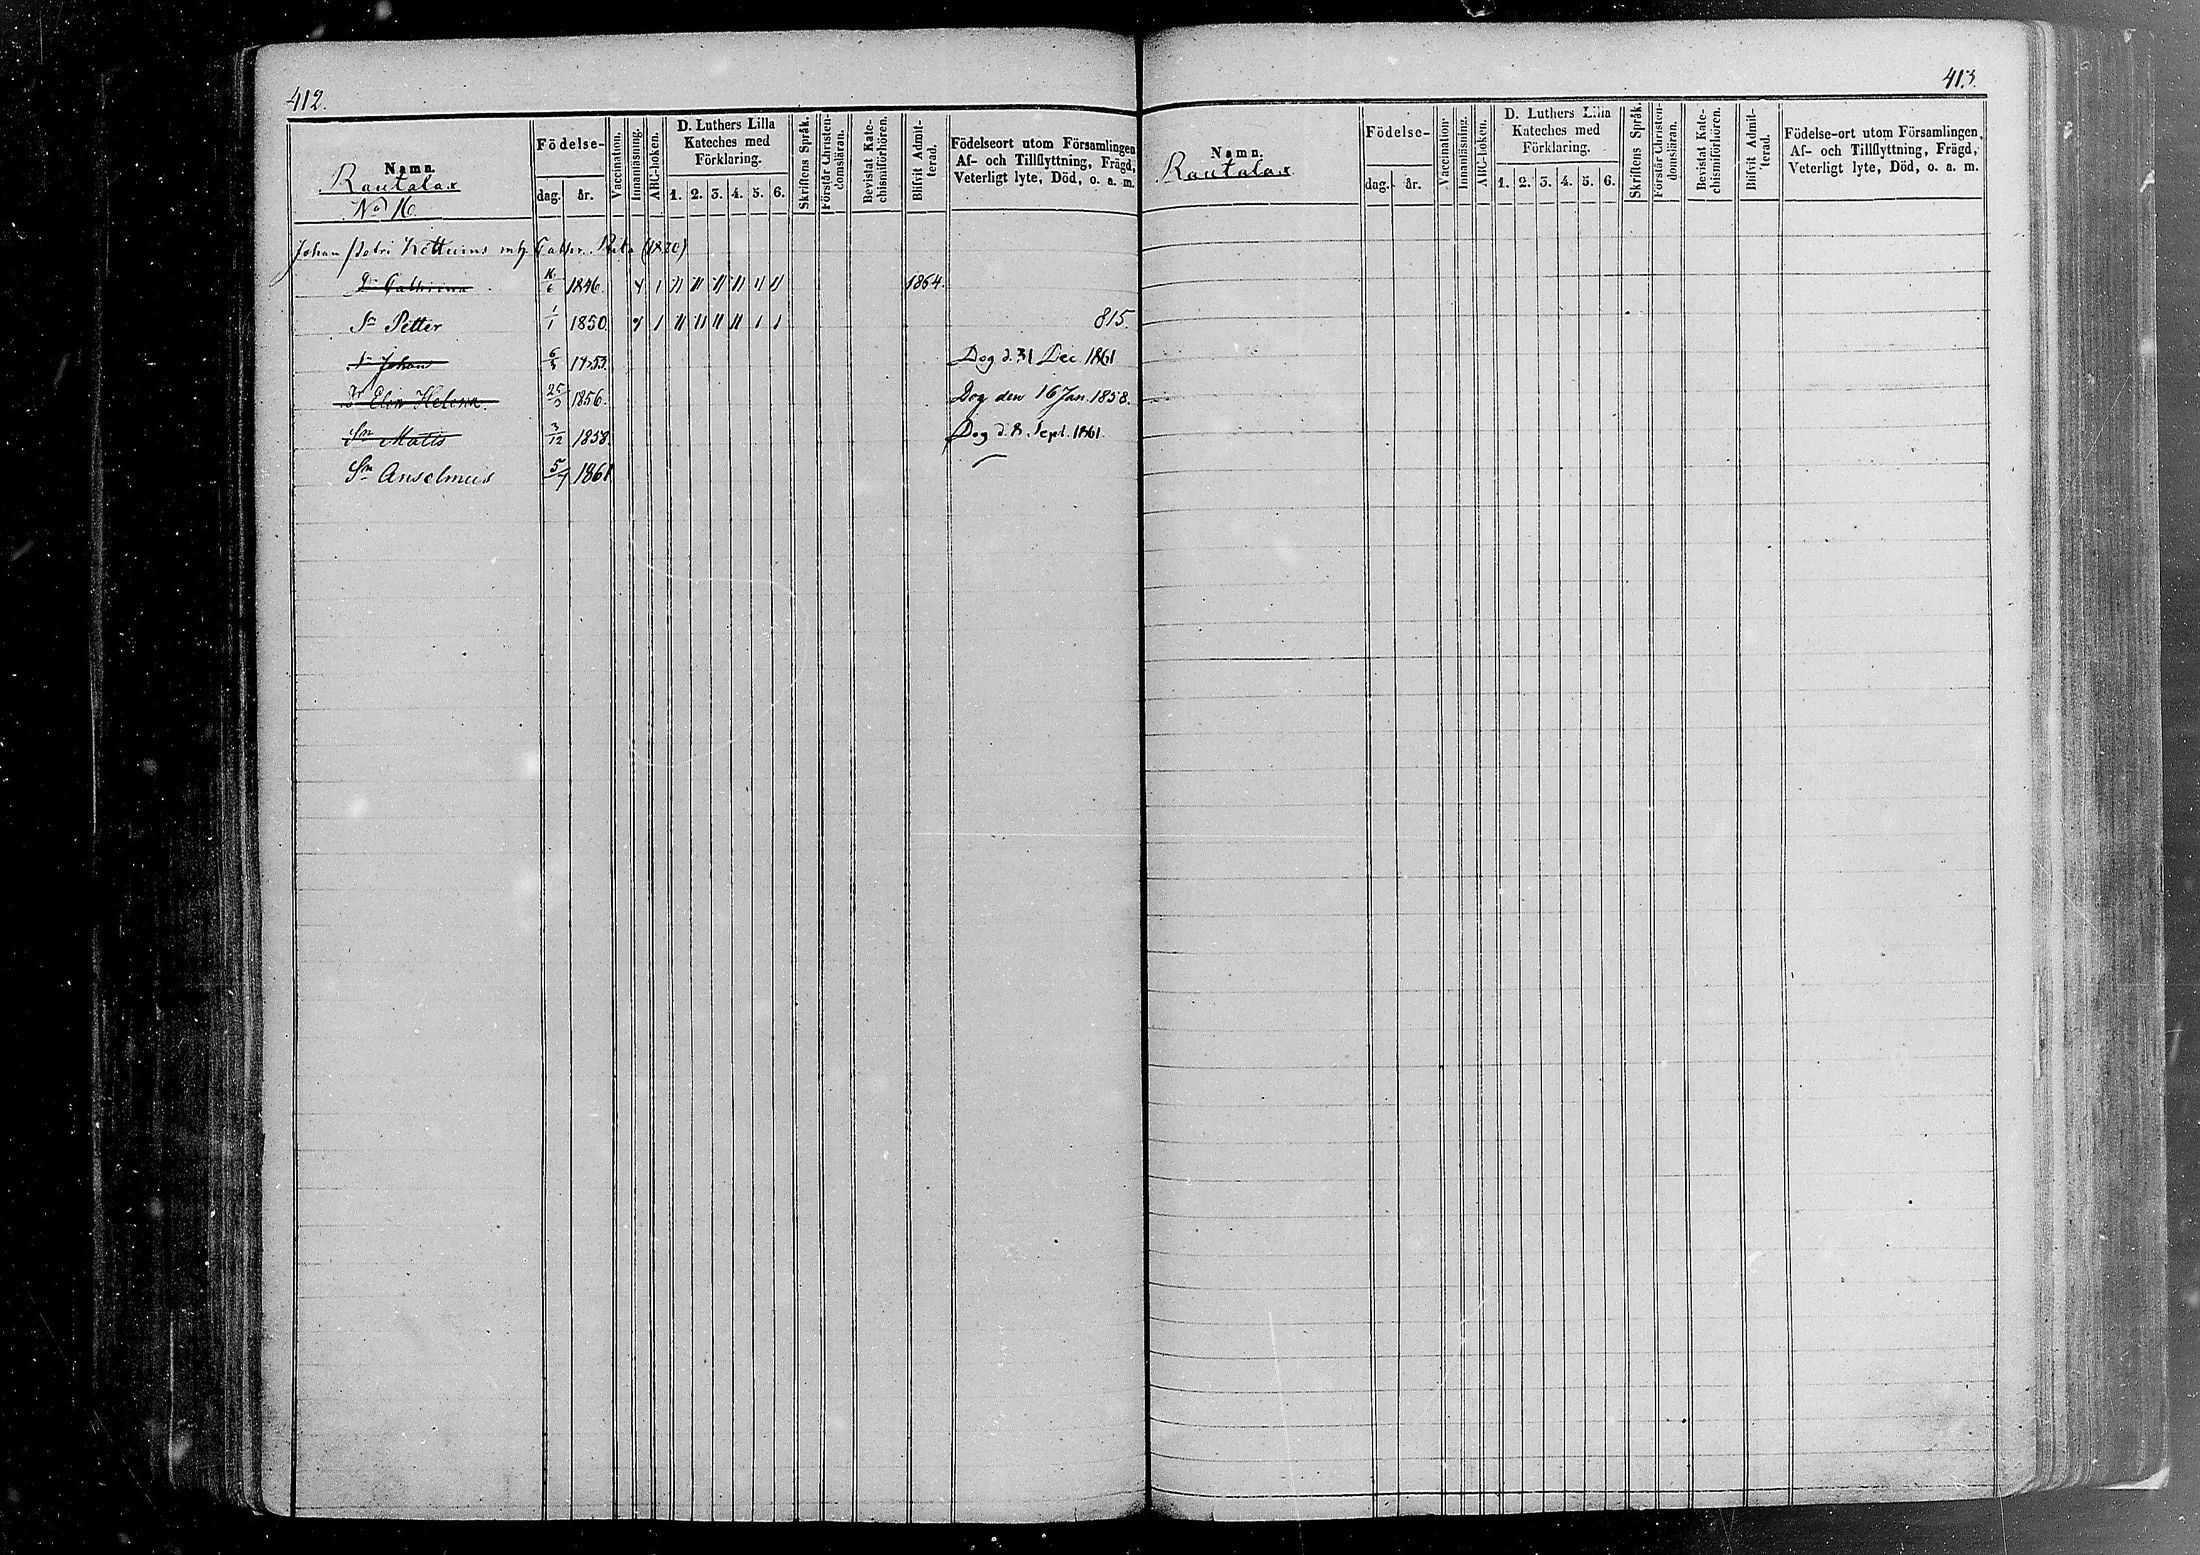 412.
Namn.
Rautalax
No 16
Födelse-
dag. år.
Vaccination.
Innanläsning.
ABC-boken.
D. Luthers Lilla
Kateches med
Förklaring.
1. 2. 3. 4. 5. 6.
Skriftens Språk.
Förstår Christen-
domsläran.
Bevistat Kate-
chismiförhören.
Blifvit Admit-
terad.
Födelseort utom Församlingen
Af- och Tillflyttning, Frägd,
Veterligt lyte, Död, o. a. m.
Johan Cathr. (1820)
Dr Cathrina 16/6 1846. 1864.
Sn Petter 1/1 1850 815.
Sn Johan 1853. Dog d. 31 Dec. 1861
Dr Elin Helena. 1856. Dog den 16 Jan. 1858.
Sn Matts 3/12 1858 Dog d. 8. Sept. 1861.
Sn Anselmus 5/7 1861
413.
Namn.
Rautalax
Födelse-
dag. år.
Vaccination
Innanläsning.
ABC-boken.
D. Luthers Lilla
Kateches med
Förklaring.
1. 2. 3. 4. 5. 6.
Skriftens Språk.
Förstår Christen-
domsläran.
Bevistat Kate-
chismiförhören.
Blifvit Admit-
terad.
Födelse-ort utom Församlingen,
Af- och Tillflyttning, Frägd,
Veterligt lyte, Död, o. a. m.